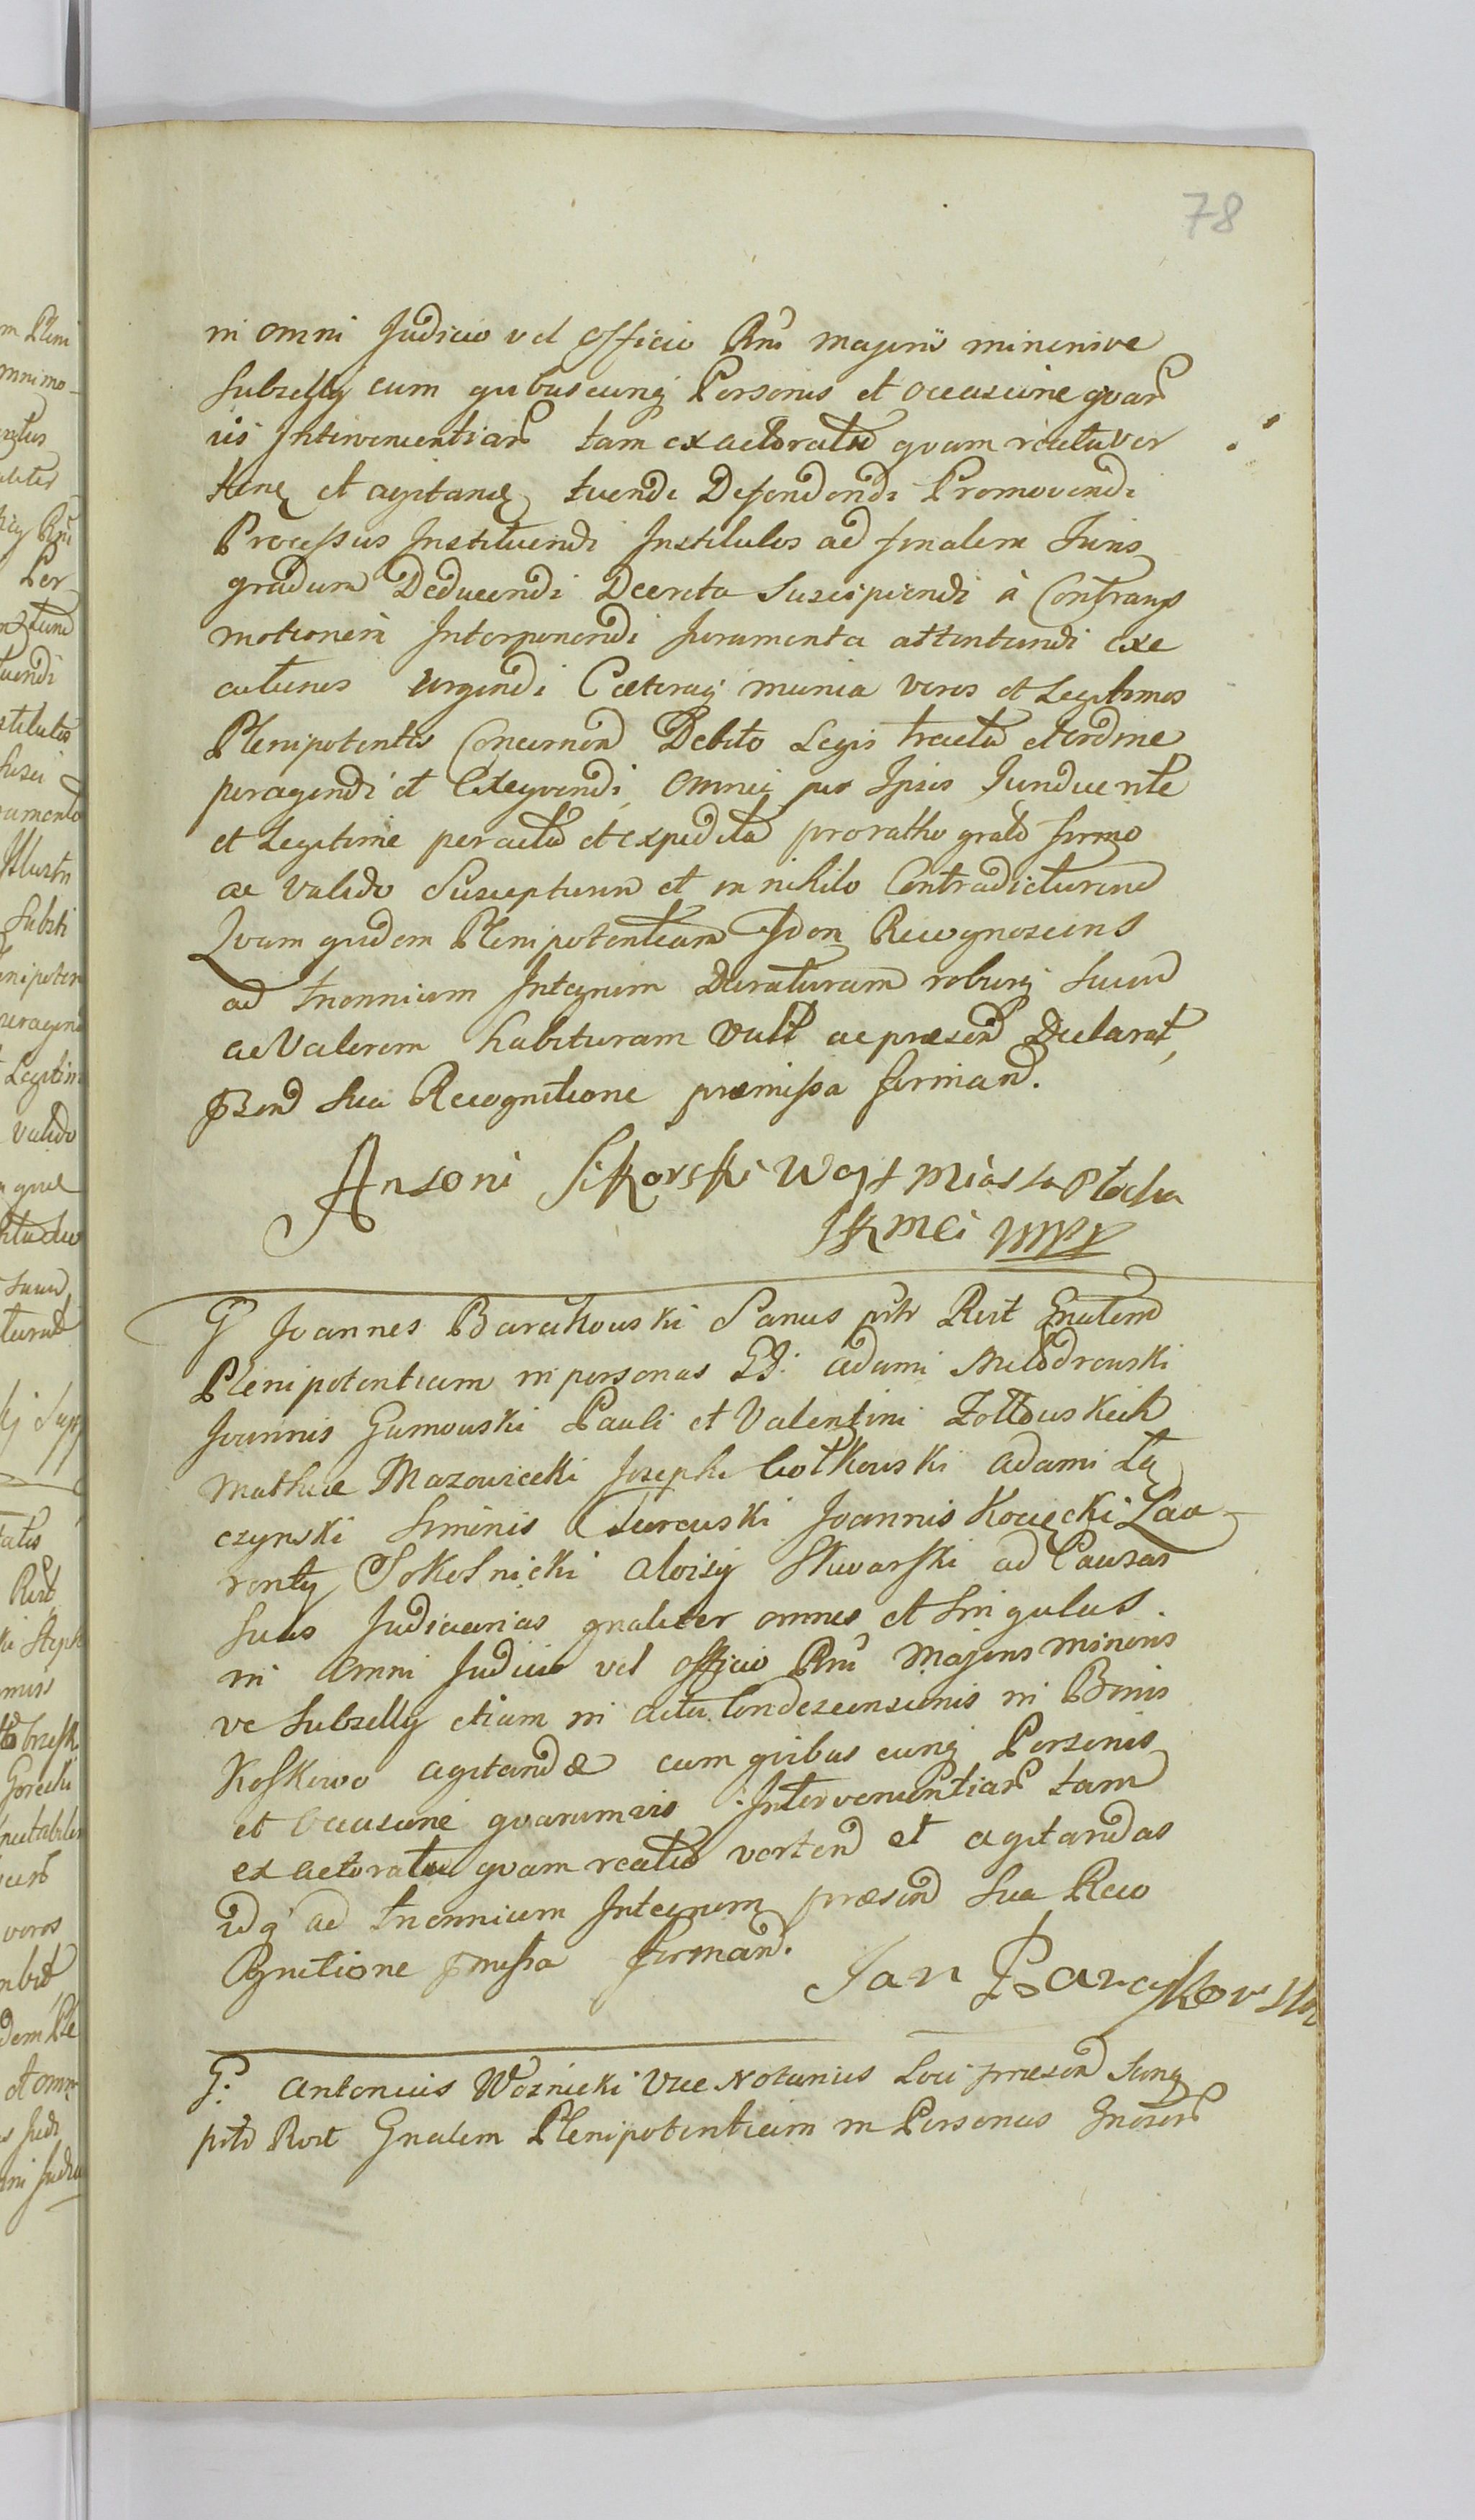 78
in omni Judicio vel Officio Rni majoris minorisve
Subsellij cum quibuscunq Personis et occasione quar
vis Intervenientiar tam ex actoratu quam reatu ver
ten et agitan tuendi Defendendi Promovendi
Processus Instituendi Institutos ad finalem Juris
gradum Deducendi Decreta Suscipiendi à Contrariis
motionem Interponendi Juramenta attentandi exe
cutiones urgendi Cæteraq munia veros et Legitimos
Plenipotentes Concernen Debito Legis tractu et ordine
peragendi et Exequendi Omnei per Ipsos
et Legitime peractu et expedita pro ratho grato firmo
ac valido Suscepturum et in nihilo Contradicturum
Quam quidem Plenipotentiam Idem Recognoscens
ad triennium Integrum Duraturam roburq suum
ac Valorem habituram vult ac præsen Declarat
Sua Recognitione præmissa firman.
Antoni Sikorski Woyt Miasta Płocka
JKMci mpp
G Joannes Baracikowski Sanus Rect Gnalem
Plenipotentiam in personas GG: Adami Milodrowski
Joannis Gumowski Pauli et Valentini Zołtowskich
Mathiæ Mazowiecki Josephi Ciołkowski Adami Łą
czynski Simonis Joannis Kocięcki Lau
renty Sokolnicki Aloisij Skwarski ad Causas
suas Judiciarias gnaliter omnes et Singulas.
in Omni Judicio vel officio Rni Majoris minoris
ve Subselly etiam in actu Condescensionis in Bonis
Koskowo agitandæ cum quibus cunq Personis
et Occasione quarumvis Intervenientiar tam
ex actoratu quam reatu verten et agitandas
idq ad triennium Integrum præsen Sua Reco
gnitione pmissa firman.
Jan Baracikowski
G. Antonius Woznicki Vice Notarius Loci præsen
Rect Gnalem Plenipotentiam in Personas Gnosor